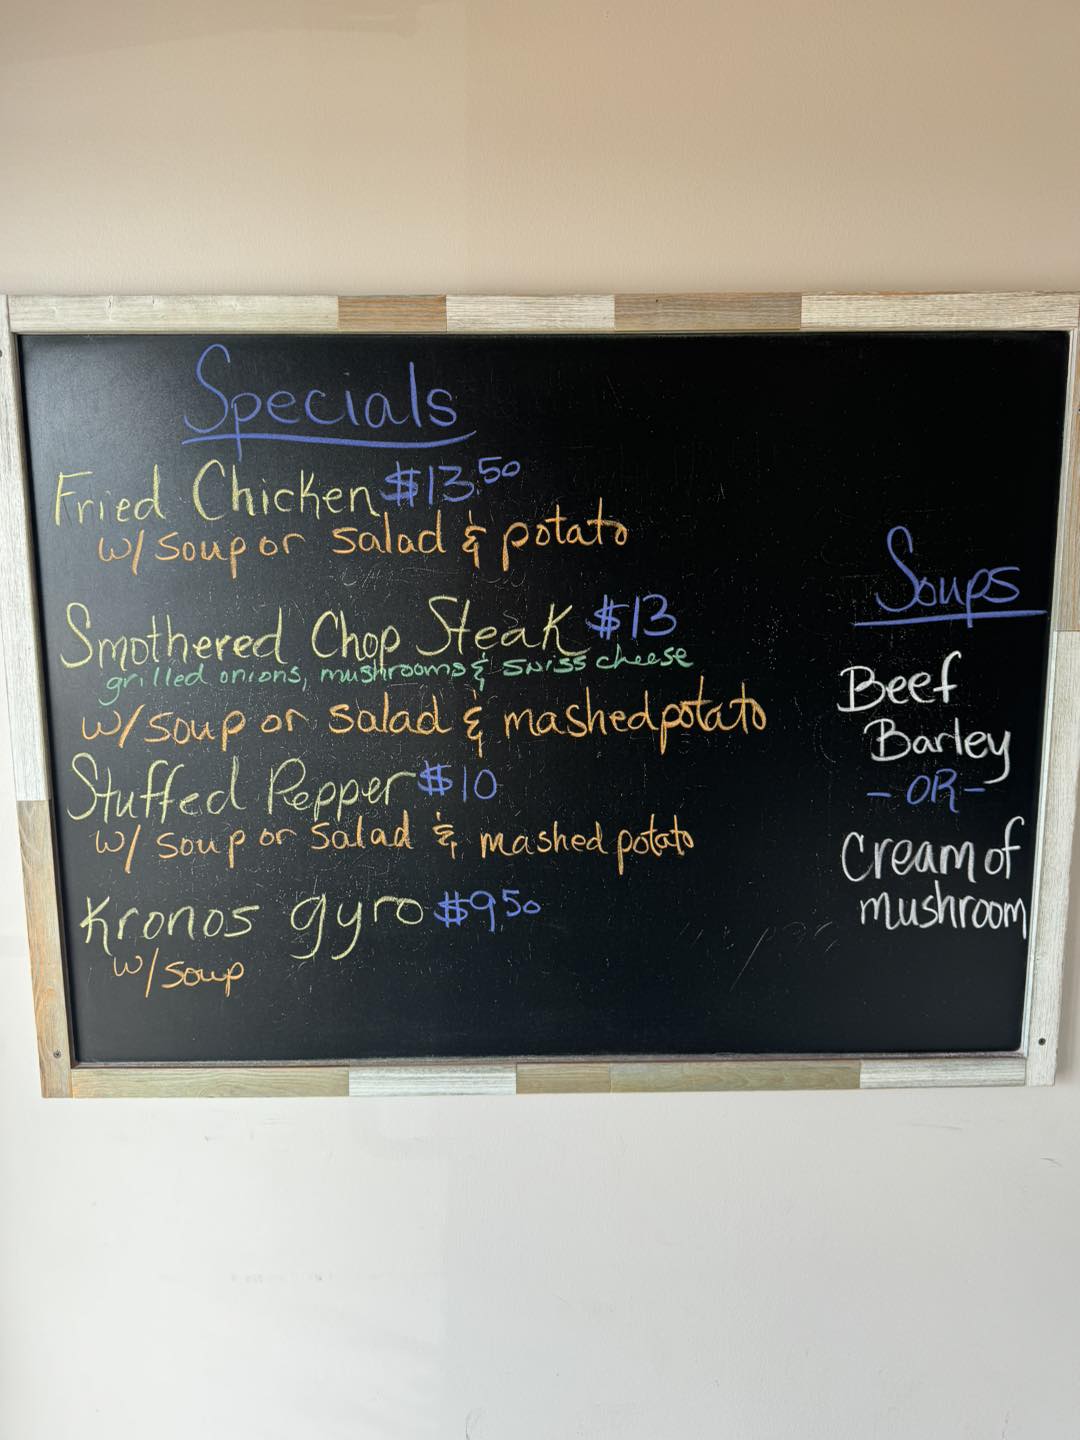 Specials
Fried Chicken $13.50
w/ soup or salad & potato
Smothered Chop Steak $13
grilled onions, mushrooms & swiss cheese
w/ soup or salad & mashed potato
Stuffed Pepper $10
w/ soup or salad & mashed potato
Kronos gyro $9 50
w/ soup
Soups
Beef
Barley
- OR -
Cream of
mushroom